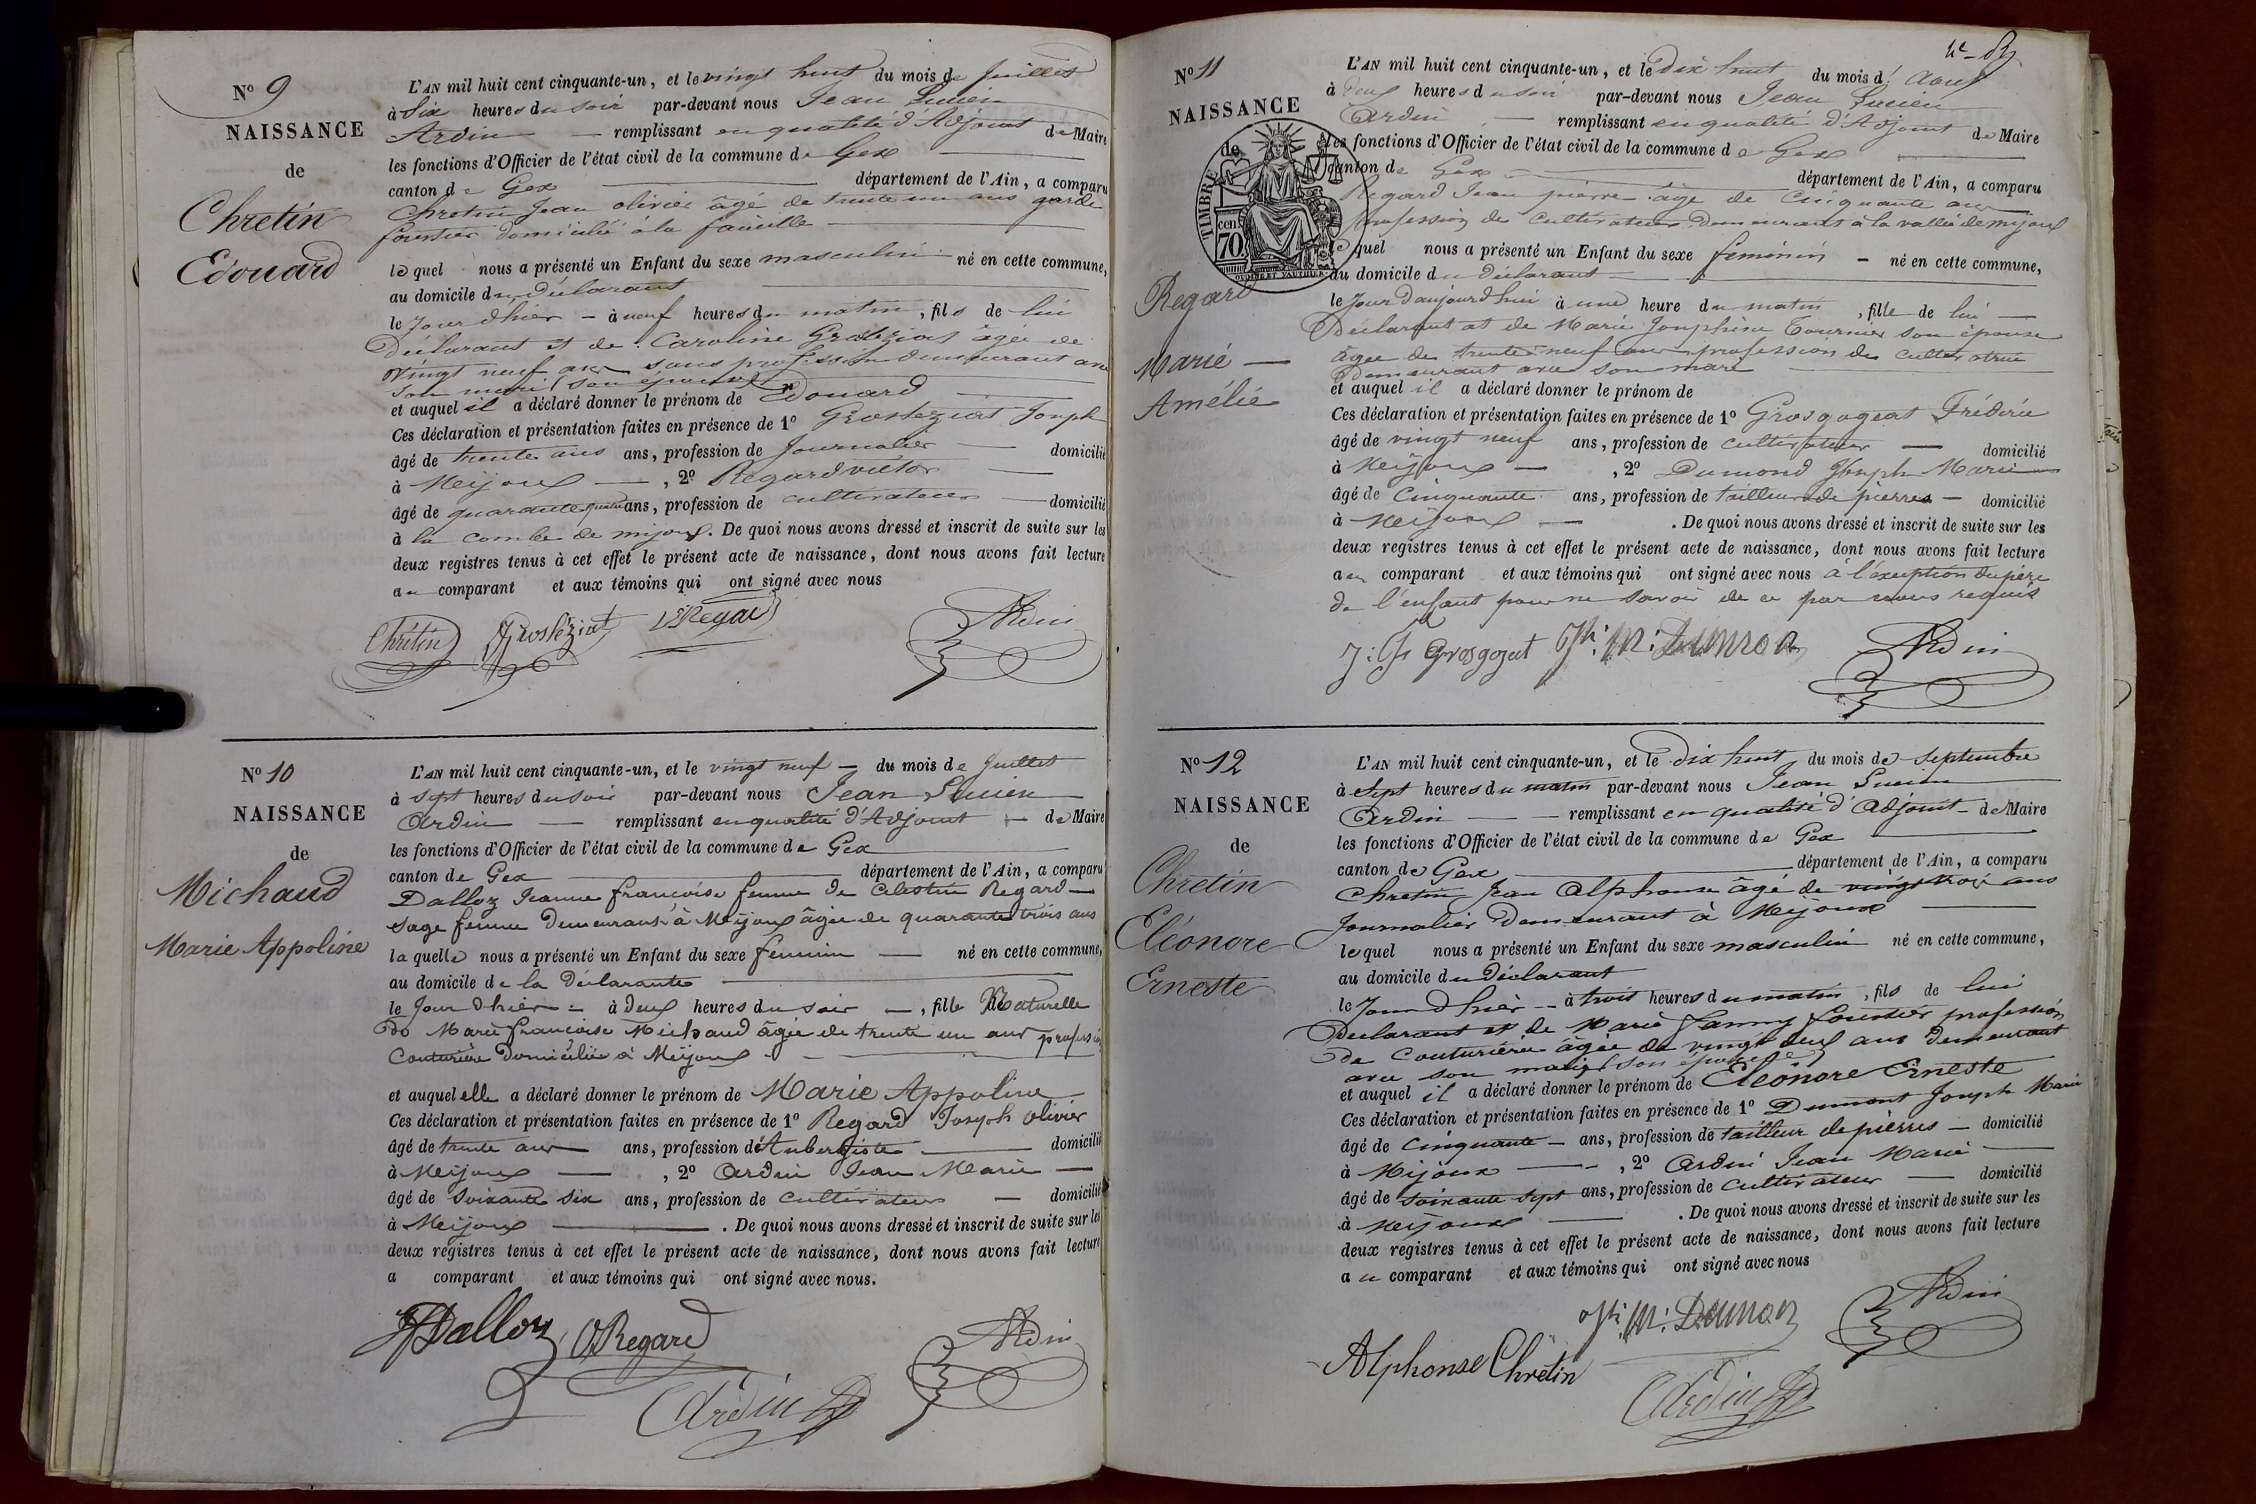 N° 9
NAISSANCE
de
Chretin
Edouard
L'AN mil huit cent cinquante-un, et le vingt huit du mois de Juillet
à Six heures du soir par-devant nous Jean Lucien
Ardin remplissant en qualité d'Adjoint de Maire
les fonctions d'Officier de l'état civil de la commune de Gex
canton de Gex département de l'Ain, a comparu
Chretin Jean olivier âgé de trente un ans garde
forestier domicilié à la faucille
lequel nous a présenté un Enfant du sexe masculin né en cette commune,
au domicile du déclarant
le Jour d'hier à neuf heures du matin, fils de lui
Déclarant et de Caroline Grosléziat âgée de
vingt neuf ans sans profession demeurant avec
son mari (son épouse)
et auquel il a déclaré donner le prénom de Edouard
Ces déclaration et présentation faites en présence de 1° Grosléziat Joseph
âgé de trente ans ans, profession de Journalier domicilié
à Meijoux, 2° Regard victor
âgé de quarante quatre ans, profession de cultivateur domicilié
à la combe de mijoux. De quoi nous avons dressé et inscrit de suite sur les
deux registres tenus à cet effet le présent acte de naissance, dont nous avons fait lecture
au comparant et aux témoins qui ont signé avec nous
Chrétin Grosléziat V Regard Ardin
N° 10
NAISSANCE
de
Michaud
Marie Appoline
L'AN mil huit cent cinquante-un, et le vingt neuf du mois de Juillet
à sept heures du soir par-devant nous Jean Lucien
Ardin remplissant en qualité d'Adjoint de Maire
les fonctions d'Officier de l'état civil de la commune de Gex
canton de Gex département de l'Ain, a comparu
Dalloz Jeanne françoise femme de Celestin Regard
sage femme demeurant à Meijoux âgée de quarante trois ans
laquelle nous a présenté un Enfant du sexe feminin né en cette commune,
au domicile de la Déclarante
le Jour d'hier à deux heures du soir, fille Naturelle
de Marie françoise Michaud âgée de trente un ans profession
Couturière domiciliée à Meijoux
et auquel elle a déclaré donner le prénom de Marie Appoline
Ces déclaration et présentation faites en présence de 1° Regard Joseph olivier
âgé de trente ans ans, profession d'Aubergiste domicilié
à Meijoux, 2° Ardin Jean Marie
âgé de soixante six ans, profession de cultivateur domicilié
à Meijoux. De quoi nous avons dressé et inscrit de suite sur les
deux registres tenus à cet effet le présent acte de naissance, dont nous avons fait lecture
a comparant et aux témoins qui ont signé avec nous.
Dalloz O Regard Ardin
Ardin
N° 11
NAISSANCE
de
TIMBRE
cen. 70
Regard
Marie
Amélie
L'AN mil huit cent cinquante-un, et le dix huit du mois d'Aout
à deux heures du soir par-devant nous Jean Lucien
Ardin remplissant en qualité d'Adjoint de Maire
les fonctions d'Officier de l'état civil de la commune de Gex
canton de Gex département de l'Ain, a comparu
Regard Jean pierre âgé de Cinquante ans
profession de Cultivateur Demeurant à la vallée de mijoux
lequel nous a présenté un Enfant du sexe féminin né en cette commune,
au domicile du déclarant
le Jour d'aujourd'hui à une heure du matin, fille de lui
Déclarant et de Marie Josephine Tournier son épouse
âgée de trente neuf ans profession de cultivatrice
demeurant avec son mari
et auquel il a déclaré donner le prénom de
Ces déclaration et présentation faites en présence de 1° Grosgogeat Fréderic
âgé de vingt neuf ans, profession de cultivateur domicilié
à Meijoux, 2° Dumond Joseph Marie
âgé de Cinquante ans, profession de tailleur de pierres domicilié
à Meijoux. De quoi nous avons dressé et inscrit de suite sur les
deux registres tenus à cet effet le présent acte de naissance, dont nous avons fait lecture
au comparant et aux témoins qui ont signé avec nous à l'exception du père
de l'enfant pour ne savoir de ce par nous requis
Grosgogeat Jh: M: Dumon Ardin
N° 12
NAISSANCE
de
Chretin
Eléonore
Erneste
L'AN mil huit cent cinquante-un, et le dix huit du mois de Septembre
à Sept heures du matin par-devant nous Jean Lucien
Ardin remplissant en qualité d'Adjoint de Maire
les fonctions d'Officier de l'état civil de la commune de Gex
canton de Gex département de l'Ain, a comparu
Chretin Jean Alphonse âgé de vingt trois ans
Journalier Demeurant à Meijoux
lequel nous a présenté un Enfant du sexe masculin né en cette commune,
au domicile du Déclarant
le Jour d'hièr à trois heures du matin, fils de lui
Déclarant et de Marie Fanny forestier profession
de Couturière âgée de vingt deux ans Demeurant
avec son mari (son épouse)
et auquel il a déclaré donner le prénom de Eléonore Erneste
Ces déclaration et présentation faites en présence de 1° Dumont Joseph Marie
âgé de cinquante ans, profession de tailleur de pièrres domicilié
à Mijoux, 2° Ardin Jean Marie
âgé de soixante sept ans, profession de cultivateur domicilié
à Meijoux. De quoi nous avons dressé et inscrit de suite sur les
deux registres tenus à cet effet le présent acte de naissance, dont nous avons fait lecture
au comparant et aux témoins qui ont signé avec nous
Jh: M: Dumon Ardin
Alphonse Chrétin Ardin